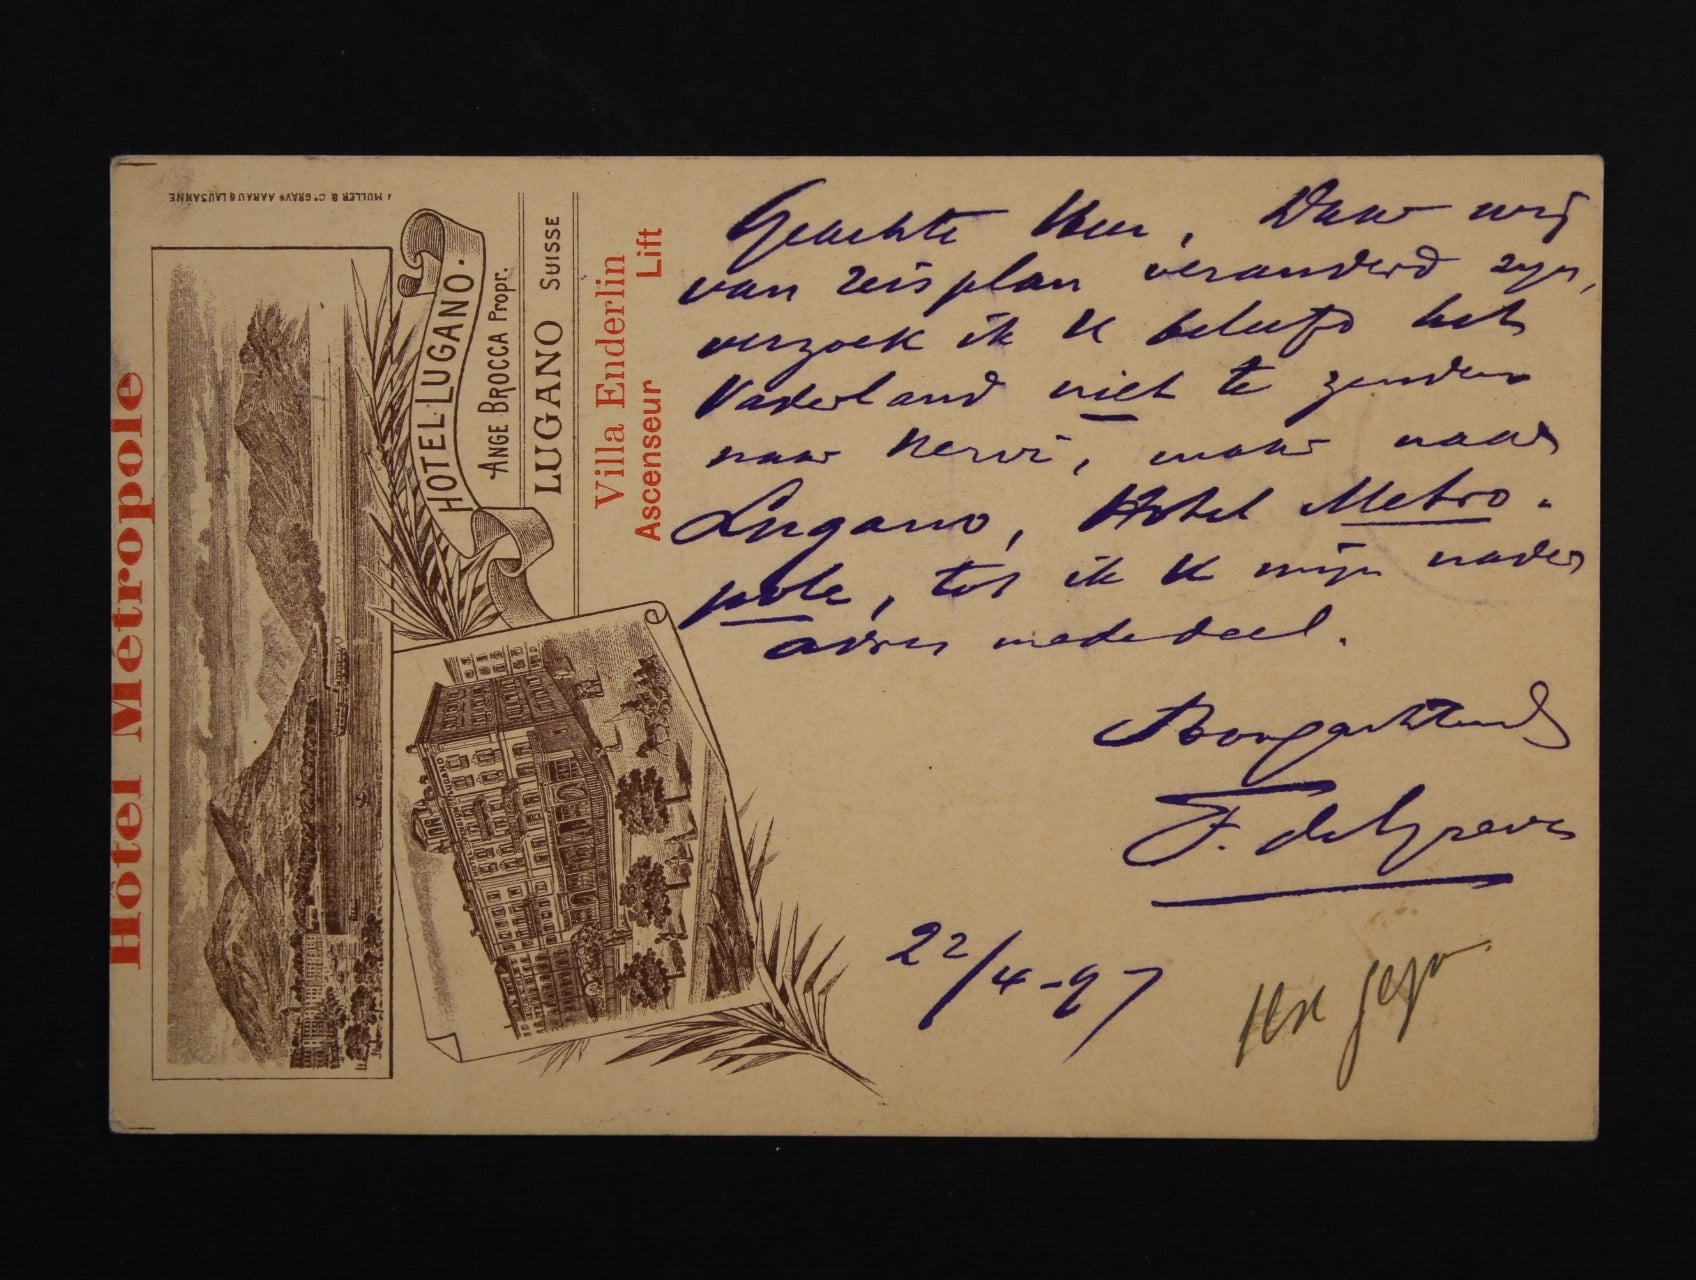 Hôtel Métropole
J. MULLER & Cº GRAVS AARAU & LAUSANNE
HOTEL LUGANO.
ANGE BROCCA Propr.
LUGANO SUISSE
Villa Enderlin
Ascenseur Lift
Geachte Heer, Daar wij
van reisplan veranderd zyn,
verzoek ik U beleefd het
Vaderland niet te zenden
naar Nervi, maar naar
Lugano, Hotel Metro-
pole, tot ik U mijn nader
adres mededeel.
Hoogachtend
F. de
22/4-97